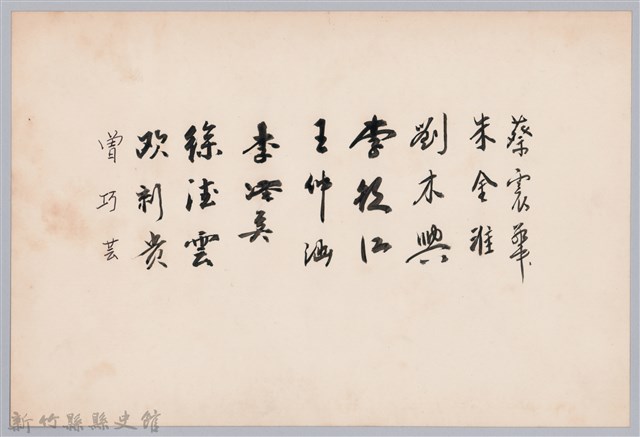 蔡震華
朱金雅
劉木興
李秋江
王仲涵
李澄吳
徐德雲
歐新貴
曾巧芸
新竹縣縣史館